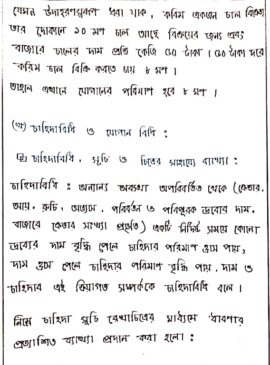 যেমন উদাহরণস্বরূপ ধরা যাক, করিম একজন চাল বিক্রেতা
তার দোকানে ১০ মণ চাল আছে বিক্রয়ের জন্য এবং
বাজারে চালের দাম প্রতি কেজি ৫০ টাকা। ৫০ টাকা দরে
করিম চাল বিক্রি করতে চায় ৮ মণ।
তাহলে এখানে যোগানের পরিমাণ হবে ৮ মণ।
(খ) চাহিদাবিধি ও যোগান বিধি:
চাহিদাবিধি, সূচি ও চিত্রের সাহায্যে ব্যাখ্যা:
চাহিদাবিধি: অন্যান্য অবস্থা অপরিবর্তিত থেকে (ক্রেতার
আয়, রুচি, অভ্যাস, পরিবর্তন ও পরিপূরক দ্রব্যের দাম,
বাজারে ক্রেতার সংখ্যা প্রভৃতি) একটি নির্দিষ্ট সময়ে কোনো
দ্রব্যের দাম বৃদ্ধি পেলে চাহিদার পরিমাণ হ্রাস পায়,
দাম হ্রাস পেলে চাহিদার পরিমাণ বৃদ্ধি পায়, দাম ও
চাহিদার এই ক্রিয়াগত সম্পর্ককে চাহিদাবিধি বলে।
নিম্নে চাহিদা সূচি রেখাচিত্রের মাধ্যমে ধারণার
প্রত্যাশিত ব্যাখ্যা প্রদান করা হলো: